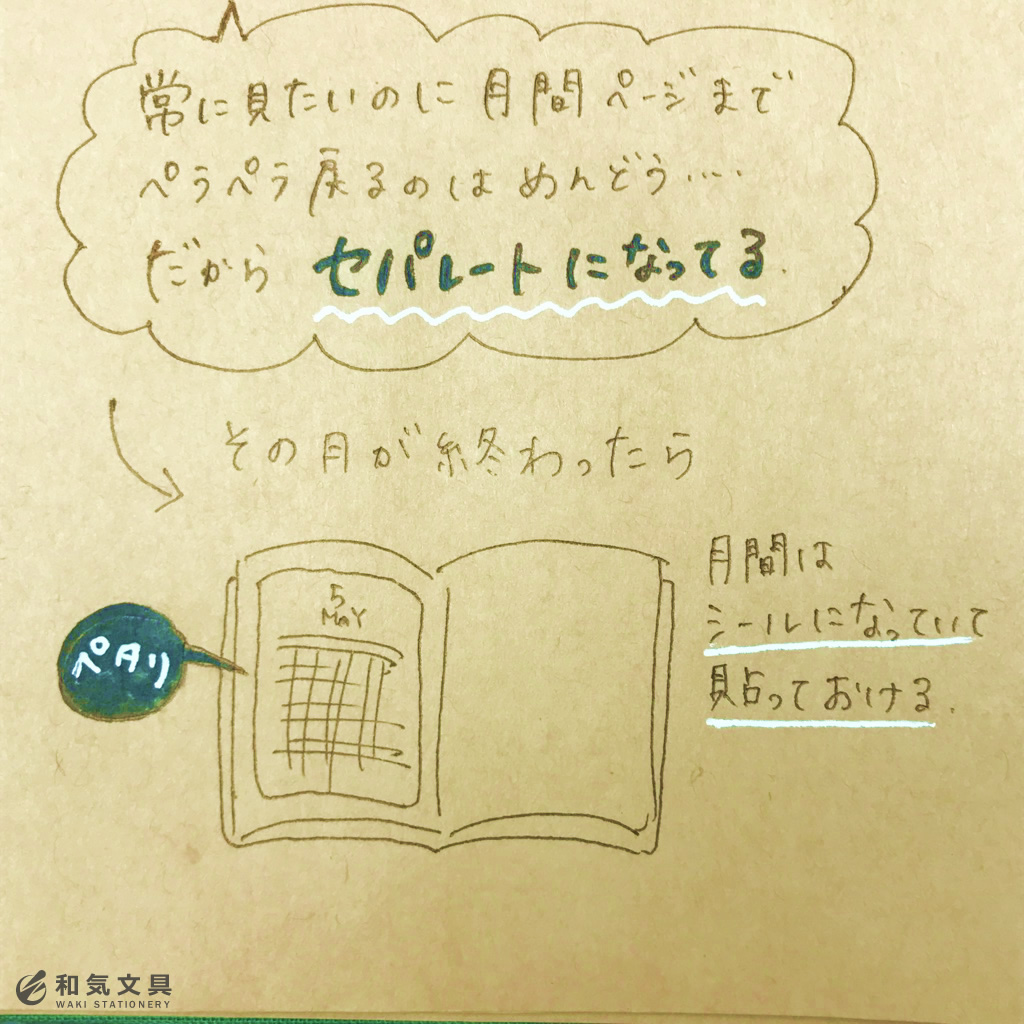 常に見たいのに月間ページまで
ペラペラ戻るのはめんどう....
だから セパレートになってる.
その月が終わったら
5
MAY
ペタリ
月間は
シールになっていて
貼っておける.
和気文具
WAKI STATIONERY